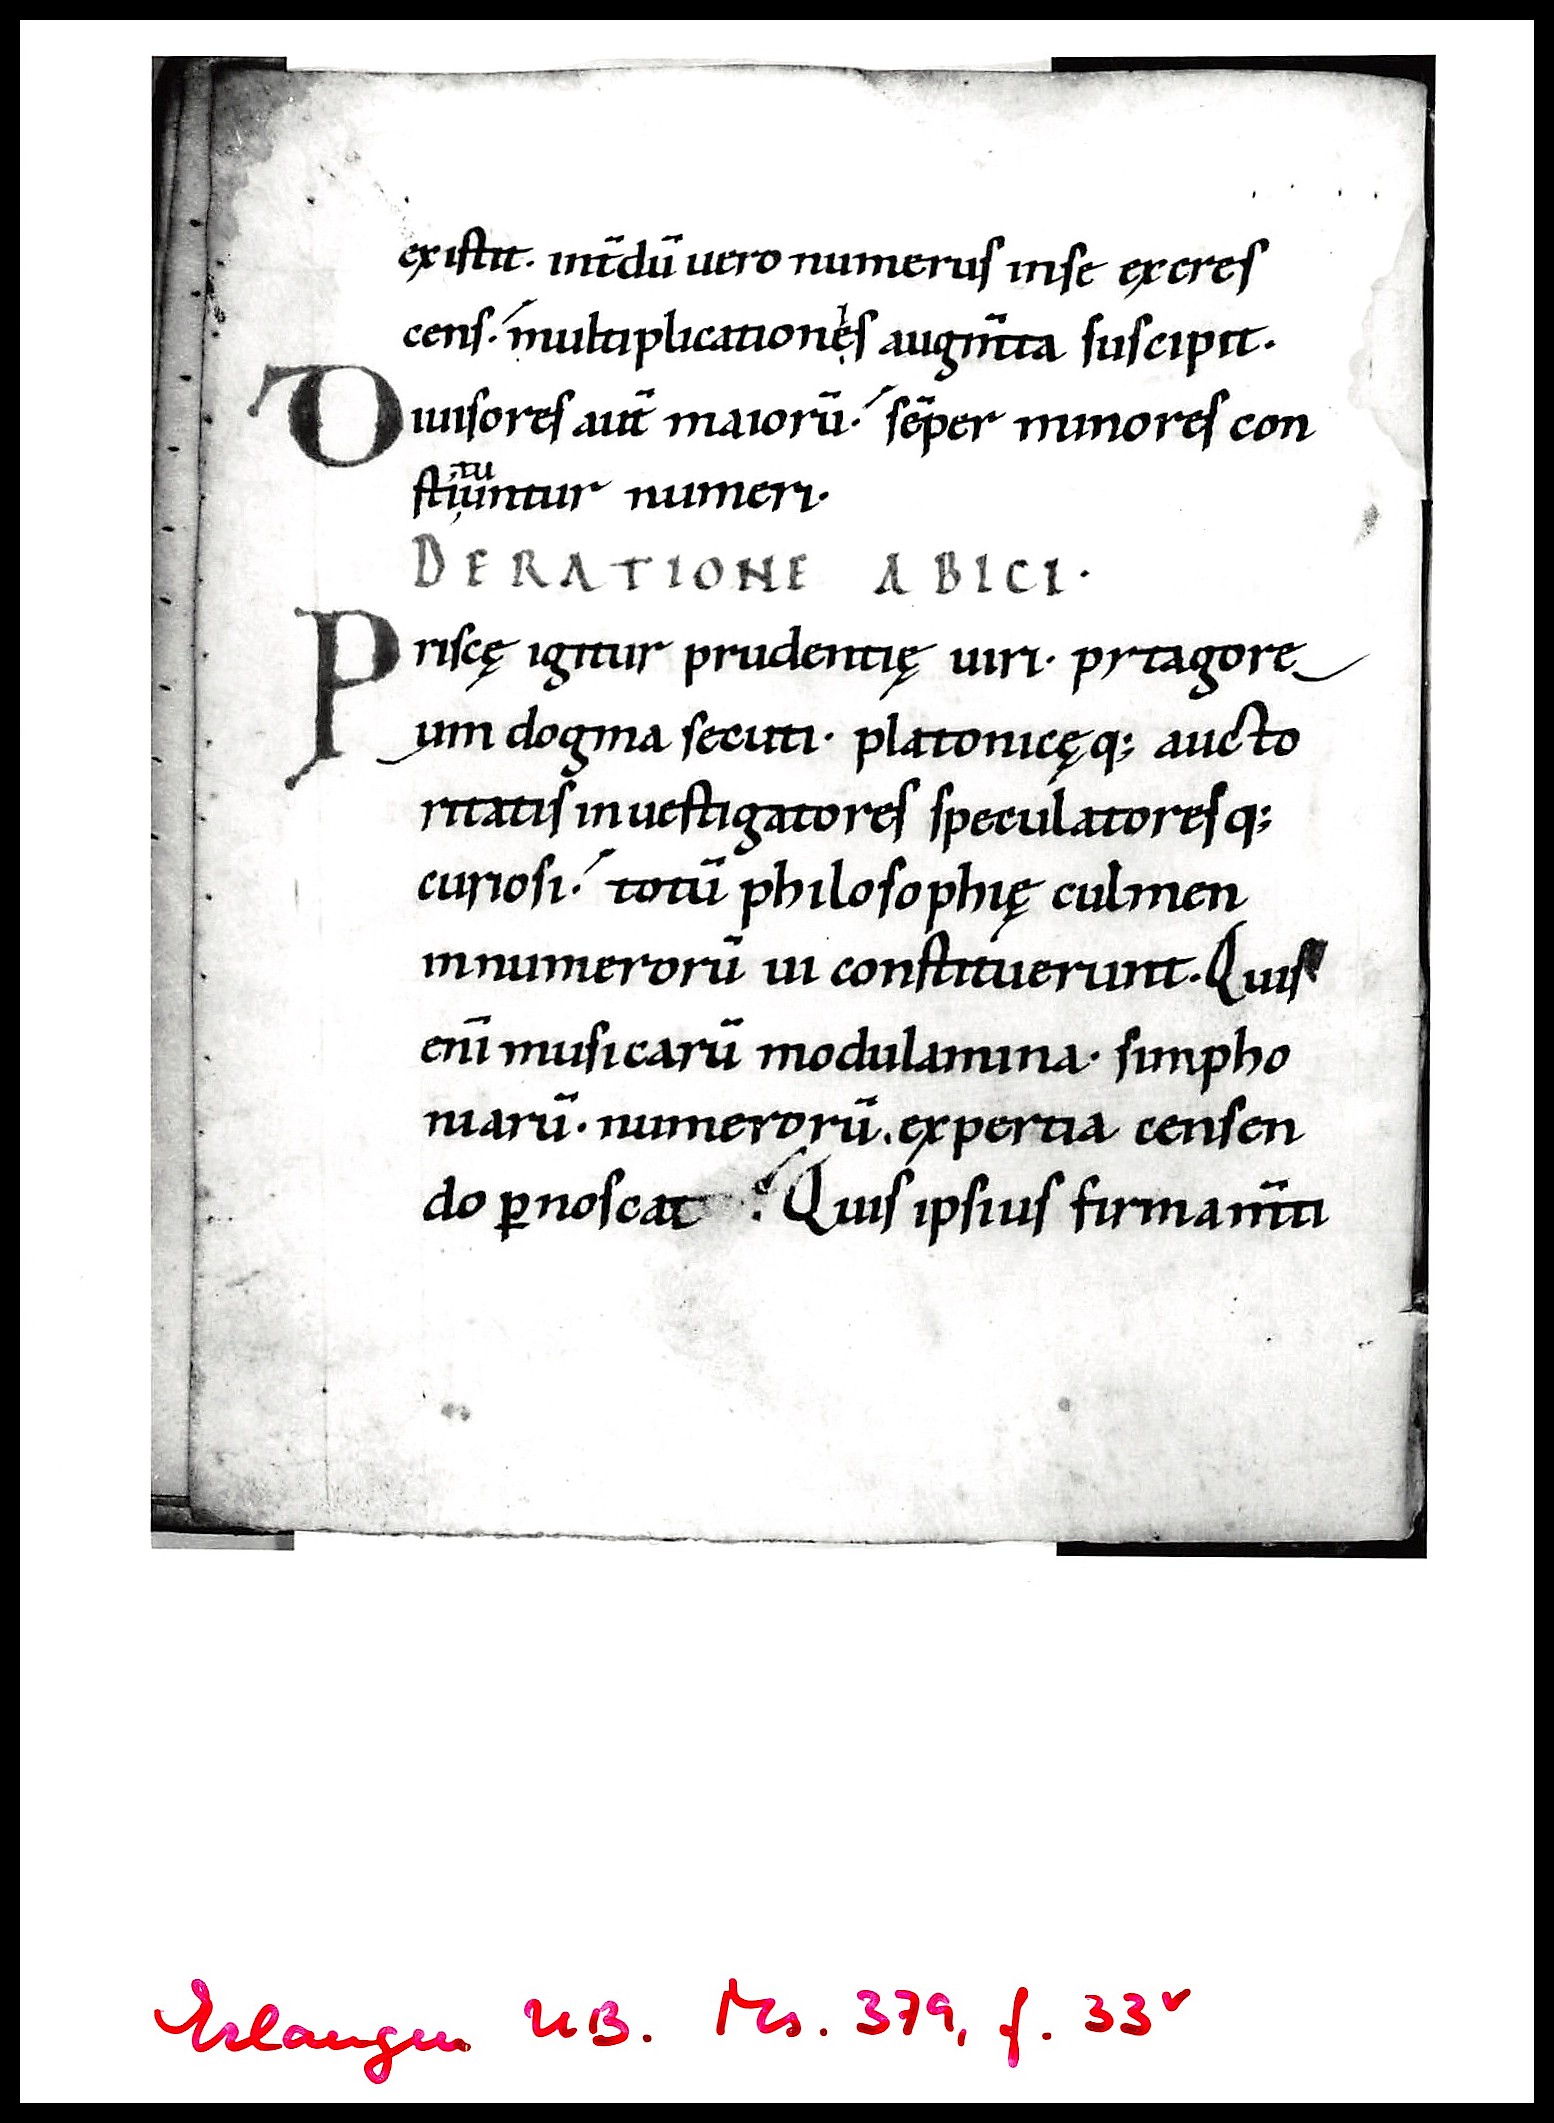 existit. int̄dū uero numerus inse excres
cens. multiplicationẹıs augm̄ta suscipit.
Diuisores aut̄ maiorū. sēper minores con
stituuntur numeri.
DE RATIONE ABICI.
Priscę igitur prudentię uiri. pytagore
um dogma secuti. platonicęq; aucto
ritatis inuestigatores speculatoresq;
curiosi. totū philosophię culmen
innumerorū ui constituerunt. Quis
enī musicarū modulamina. simpho
niarū. numerorū. expertia censen
do ꝑnoscat? Quis ipsius firmam̄ti
Erlangen UB. Ms. 379, f. 33v